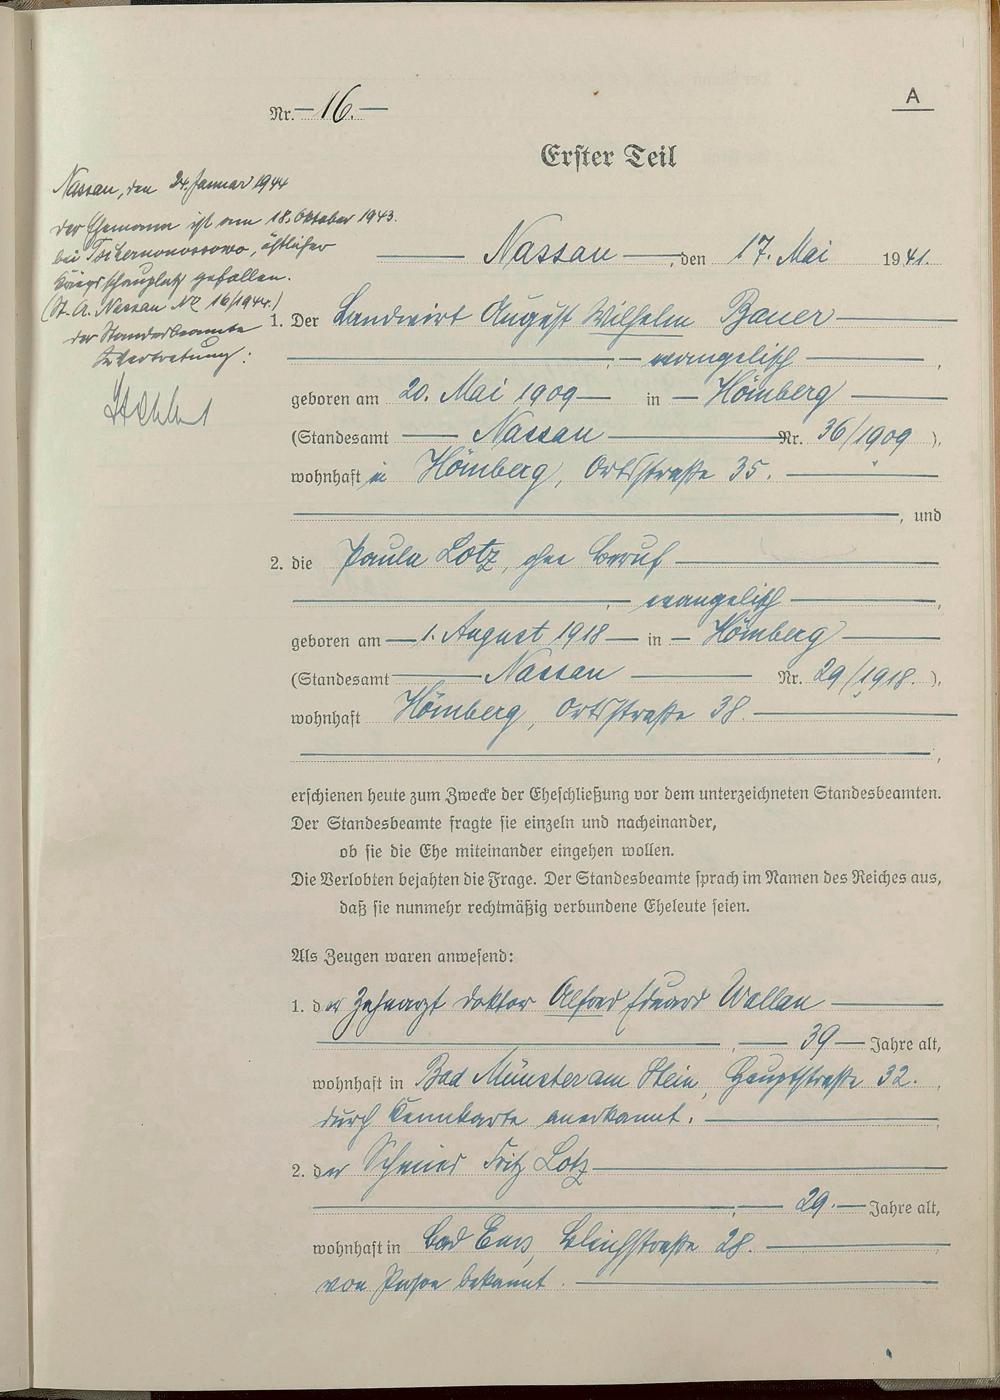 A
Nr. 16.
Erster Teil
Nassau, den 24. Januar 1944
Der Ehemann ist am 18. Oktober 1943.
bei Tschernomossowo, östlicher
Kriegsschauplatz gefallen.
(St. A. Nassau Nr. 16/1944.)
der Standesbeamte
In Vertretung:
Nassau, den 17. Mai 1941.
1. Der Landwirt August Wilhelm Bauer
, evangelisch,
geboren am 20. Mai 1909 in Hömberg
(Standesamt Nassau Nr. 36/1909),
wohnhaft in Hömberg, Ortsstraße 35.
, und
2. die Paula Lotz, ohne Beruf
, evangelisch,
geboren am 1. August 1918 in Hömberg
(Standesamt Nassau Nr. 29/1918.),
wohnhaft Hömberg, Ortsstraße 38.
,
erschienen heute zum Zwecke der Eheschließung vor dem unterzeichneten Standesbeamten.
Der Standesbeamte fragte sie einzeln und nacheinander,
ob sie die Ehe miteinander eingehen wollen.
Die Verlobten bejahten die Frage. Der Standesbeamte sprach im Namen des Reiches aus,
daß sie nunmehr rechtmäßig verbundene Eheleute seien.
Als Zeugen waren anwesend:
1. der Zahnarzt Doktor Alfred Eduard Wallau
, 39 Jahre alt,
wohnhaft in Bad Münster am Stein, Hauptstraße 32.,
durch Kennkarte anerkannt.
2. der Fritz Lotz
, 29. Jahre alt,
wohnhaft in Bad Ems, Bleichstraße 28.
von Person bekannt.